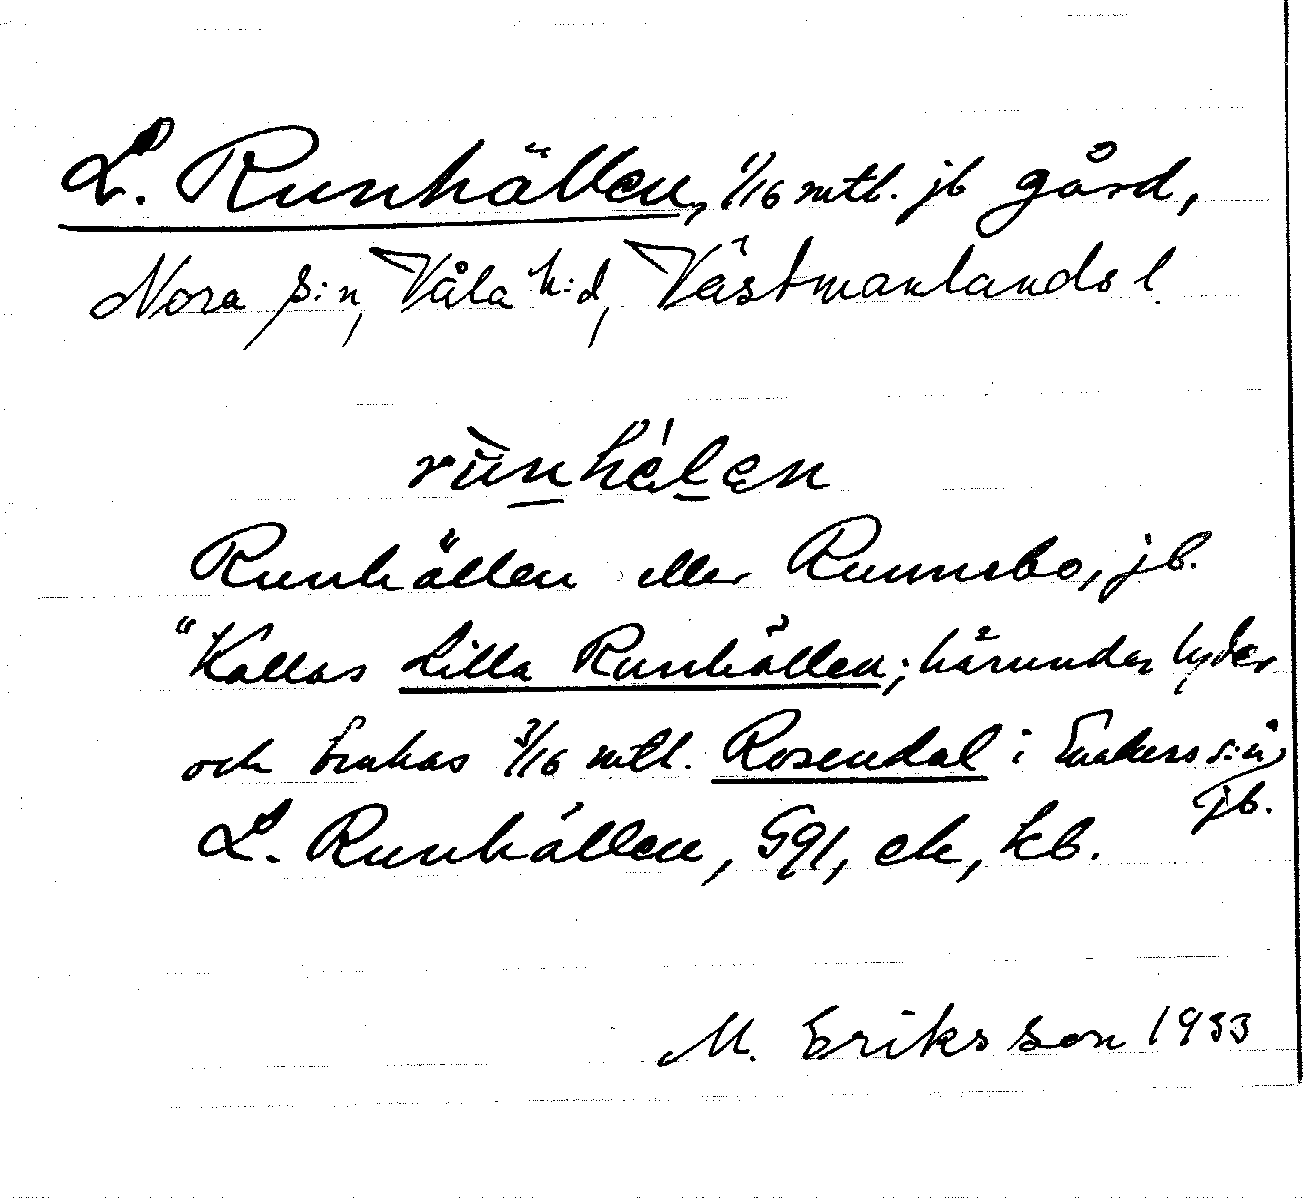 L. Runhällen, 1/16 mtl. jb gård,
Nora s:n, Våla h:d, Västmanlands l.
rùnhélen
Runhällen eller Runnebo, jb.
"Kallas Lilla Runhällen; härunder lyder
och brukas 3/16 mtl. Rosendal i Enåkers s:n"
jb.
L. Runhällen, Sql, ek, kb.
M. Eriksson 1933